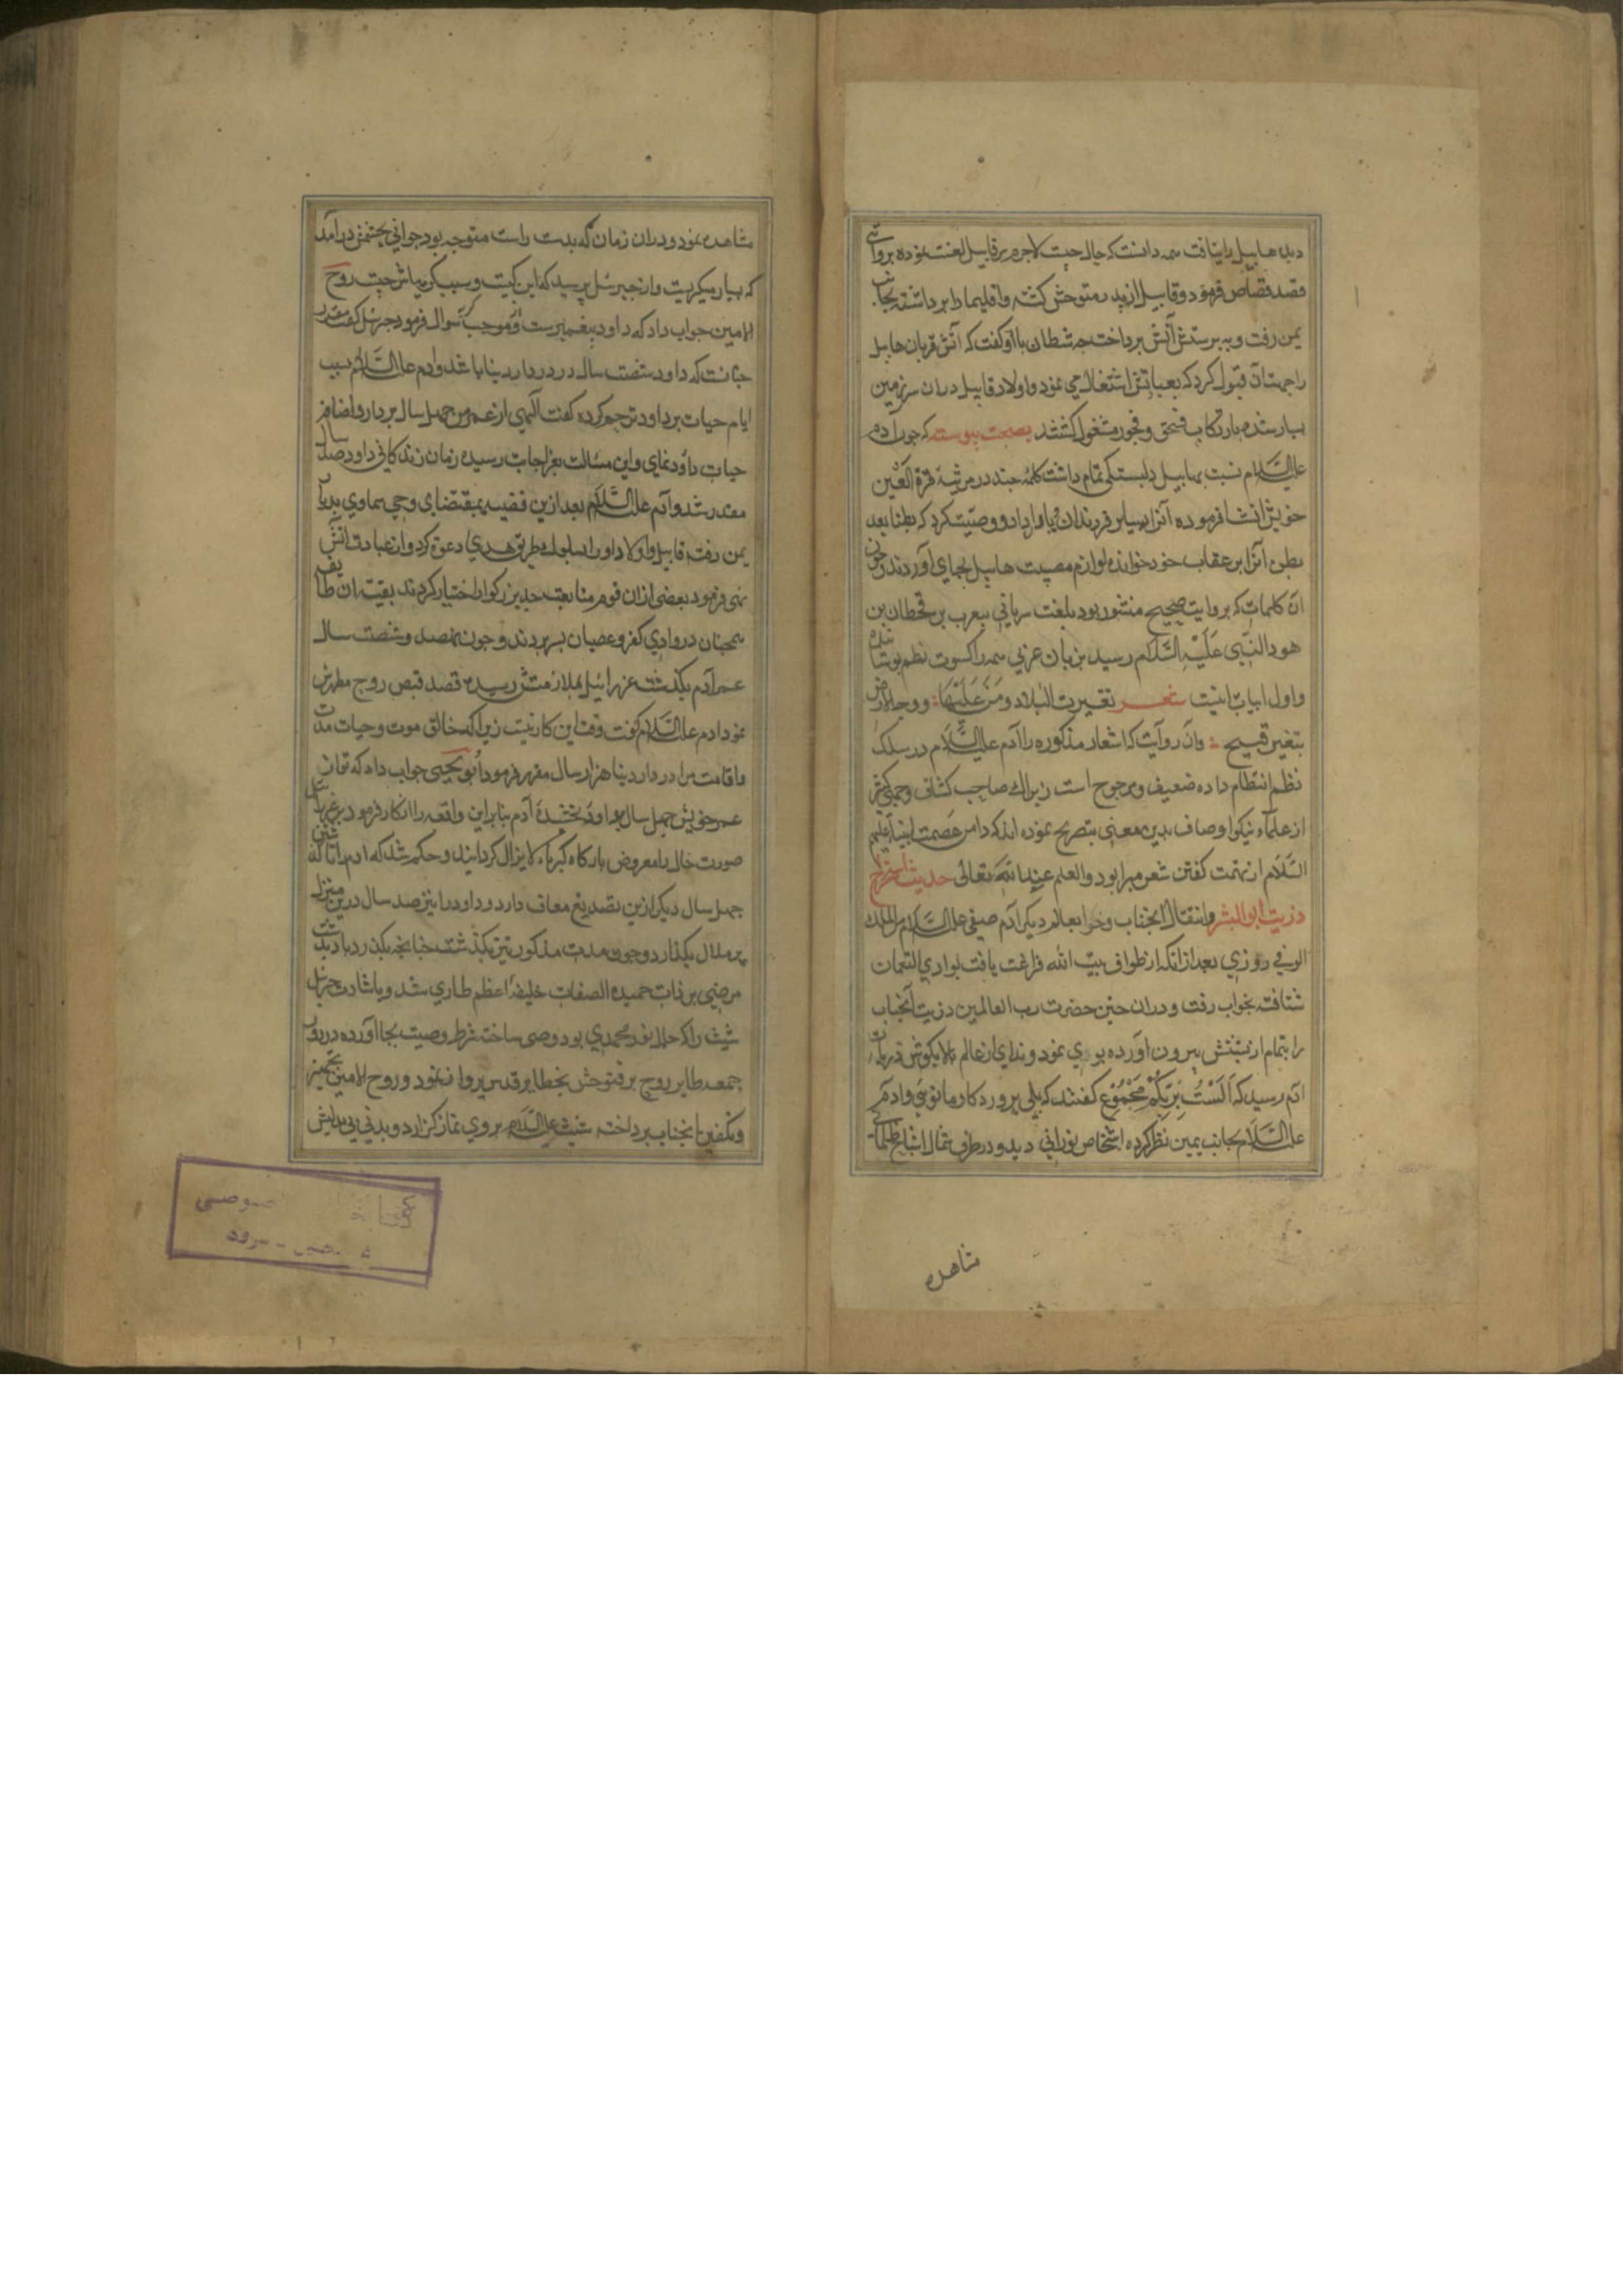 دید هابیل را نیافت همه دانست که حال چیست لاجرم بر قابیل لعنت نموده بروایتی
قصد قصاص فرمود و قابیل از پدر متوحش کشته واقلیما را برداشته بجانب
یمن رفت و به پرستش آتش پرداخت چه شیطان با او کفت که آتش قربان هابیل
را جهت آن قبول کرد که بعبادتش اشتغال می نمود و اولاد قابیل دران سرزمین
بسیار شده بارتکاب فسق و فجور مشغول کشتند بصحت پیوسته که چون آدم
علیه السَّلام نسبت بهابیل دلبستکی تمام داشت کلمهٔ چند در مرثیهٔ قرة العین
خویش انشا فرموده آنرا بسایر فرزندان یاد داد و وصیت کرد که بطنا بعد
بطن آنرا بر عقاب خود خوانده لوازم مصیبت هابیل بجای آوردند و چون
ان کلمات که بروایت صحیح منثور بود بلغت سریانی بیعرب بن قحطان بن
هود النّبی عَلَیْهِ السَّلام رسید بزبان عربی همه را کسوت نظم پوشانیده
واول ابیات اینست شعر تغیرت البلاد ومَنْ عَلَیْهَا ووجه الارض
بتغیر قبیح وان روایت که اشعار مذکوره را آدم علیه السَّلام در سلک
نظم انتظام داده ضعیف و مرجوح است زیرا که صاحب کشاف و جمعی کثیر
از علماء نیکو اوصاف بدین معنی تصریح نموده اند که دامن عصمت انبیا علیهم
السَّلام از تهمت کفتن شعر مبرا بود والعلم عند الله تعالی حدیث استخراج
ذریت ابو البشر وانتقال آنجناب و حوا بعالم دیکر آدم صفی علیه السَّلام من الملک
الوفی روزی بعد از آنکه از طواف بیت الله فراغت یافت بوادی النعمان
شتافته بخواب رفت و دران حین حضرت رب العالمین ذریت آنجناب
را بتمام از پشتش بیرون آورده بوی نمود و ندای از عالم بالا بکوش ذریات
آدم رسید که اَلَسْتُ بِرَبِّکُمْ مجموع کفتند که بلی پروردکار ما توئی و آدم
علیه السَّلام بجانب یمین نظر کرده اشخاص نورانی دید و در طرف شمال اشباح ظلمانی
مشاهده
مشاهده نمود و دران زمان که بدست راست متوجه بود جوانی بچشمش درآمد
که بسیار میکریست و از جبرئیل پرسید که این کیست و سبب کریهاش چیست روح
الامین جواب داد که داود پیغمبرست او موجب سوال فرمود جبرئیل کفت مقدر
چنانست که داود شصت سال در دار دنیا باشد و آدم علیه السَّلام سبب
ایام حیات بر داود ترحم کرده کفت الهی از عمر من چهل سال بردار و اضافه
حیات داود نمای و این مسالت بعز اجابت رسیده زمان زندکانی داود صد سال
مقدر شد و آدم علیه السَّلام بعد ازین قضیه بمقتضای وحی سماوی بدیار
یمن رفته قابیل و اولاد او را بسلوک طریق هدی دعوت کرد و از عبادت آتش
نهی فرمود بعضی ازان قوم متابعت جد بزرکوار اختیار کردند بقیت ان طایفه
همچنان در وادی کفر و عصیان بسر بردند و چون نهصد و شصت سال
عمر آدم بکذشت عزرائیل بملازمتش رسیده قصد قبض روح مطهرش
نمود آدم علیه السَّلام کفت وقت این کار نیست زیرا که خالق موت و حیات مدت
اقامت مرا در دار دنیا هزار سال مقرر فرمود ابو یحیی جواب داد که تو از
عمر خویش چهل سال بداود بخشیدهٔ آدم بنابراین واقعه را انکار فرمود عزرائیل
صورت حال را معروض بارکاه کبریاء لایزال کردانید و حکم شد که آدم را تا
چهل سال دیکر ازین تصدیع معاف دارد و داود را نیز صد سال درین منزل
پر ملال بکذارد و چون مدت مذکور نیز بکذشت
مرضی بر ذات حمیده الصفات خلیفهٔ اعظم طاری شد و باشارت جبرئیل
شیث را که حامل نور محمدی بود وصی ساخته شرط وصیت بجا آورده در روز
جمعه طایر روح پرفتوحش بخطایر قدس پرواز نمود و روح الامین بتجهیز
و تکفین آنجناب پرداخته شیث علیه السَّلام بروی نماز کزارد و